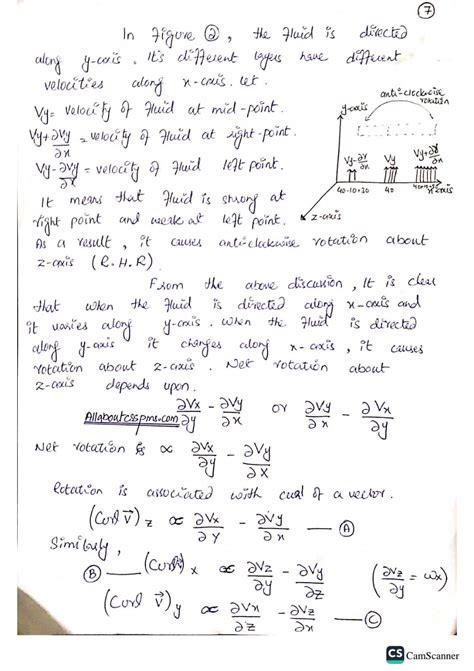 7
In Figure 2, the fluid is directed
along y-axis. It's different layers have different
velocities along x-axis. Let.
Vy = velocity of fluid at mid-point.
Vy+∂Vy/∂x = velocity of fluid at right-point.
Vy-∂Vy/∂x = velocity of fluid left point.
It means that Fluid is strong at
right point and weak at left point.
As a result, it causes anti-clockwise rotation about
z-axis (R.H.R).
anti-clockwise
rotation
y-axis
Vy-∂V/∂x Vy Vy+∂V/∂x
40-10=30 40 x-axis
z-axis
From the above discussion, It is clear
that when the fluid is directed along x-axis and
it varies along y-axis. When the fluid is directed
along y-axis it changes along x-axis, it causes
rotation about z-axis. Net rotation about
z-axis depends upon.
Allaboutcsspms.com ∂Vx/∂y - ∂Vy/∂x or ∂Vy/∂x - ∂Vx/∂y
Net rotation is ∝ ∂Vx/∂y - ∂Vy/∂x
Rotation is associated with curl of a vector.
(Curl V⃗)z ∝ ∂Vx/∂y - ∂Vy/∂x — A
Similarly,
B — (Curl)x ∝ ∂Vz/∂y - ∂Vy/∂z (∂Vz/∂y = ωx)
(Curl V⃗)y ∝ ∂Vx/∂z - ∂Vz/∂x — C
CS CamScanner